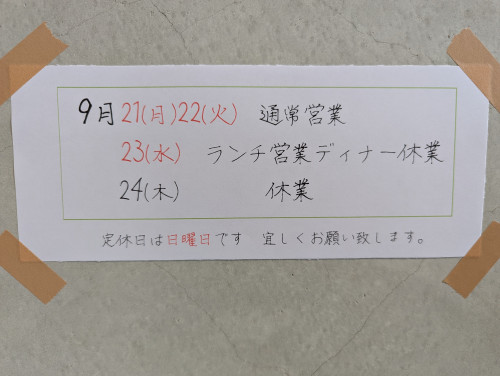 9月21(月)22(火) 通常営業
23(水) ランチ営業ディナー休業
24(木) 休業
定休日は日曜日です 宜しくお願い致します。